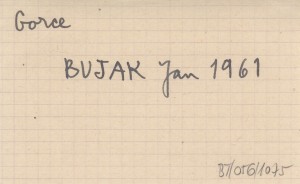 Gorce
BUJAK Jan 1961
BJ/056/1075